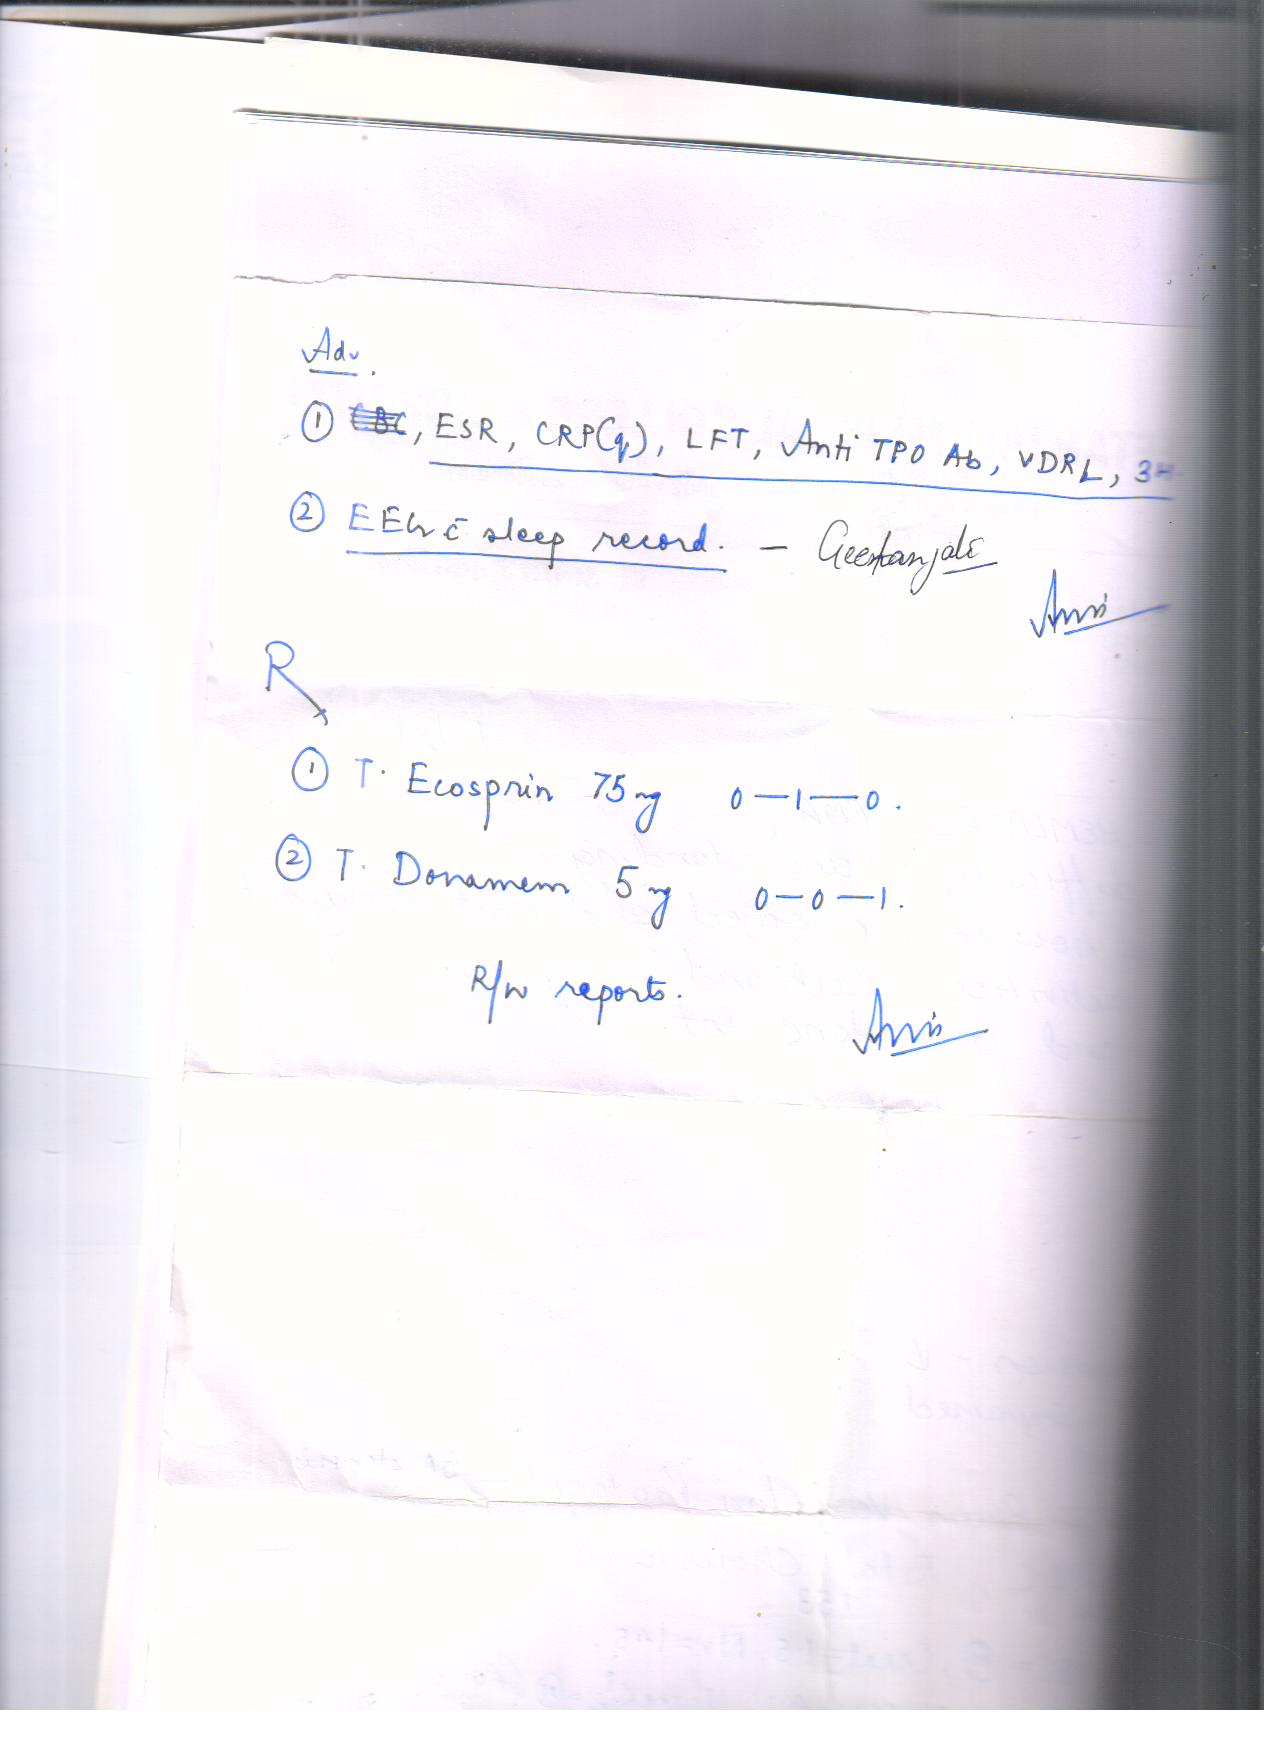 Adv.
① CBC, ESR, CRP(q), LFT, Anti TPO Ab, VDRL, 3H
② EEG c̄ sleep record. — Geetanjali
R
① T. Ecosprin 75 mg 0—1—0.
② T. Donamem 5 mg 0—0—1.
R/w reports.